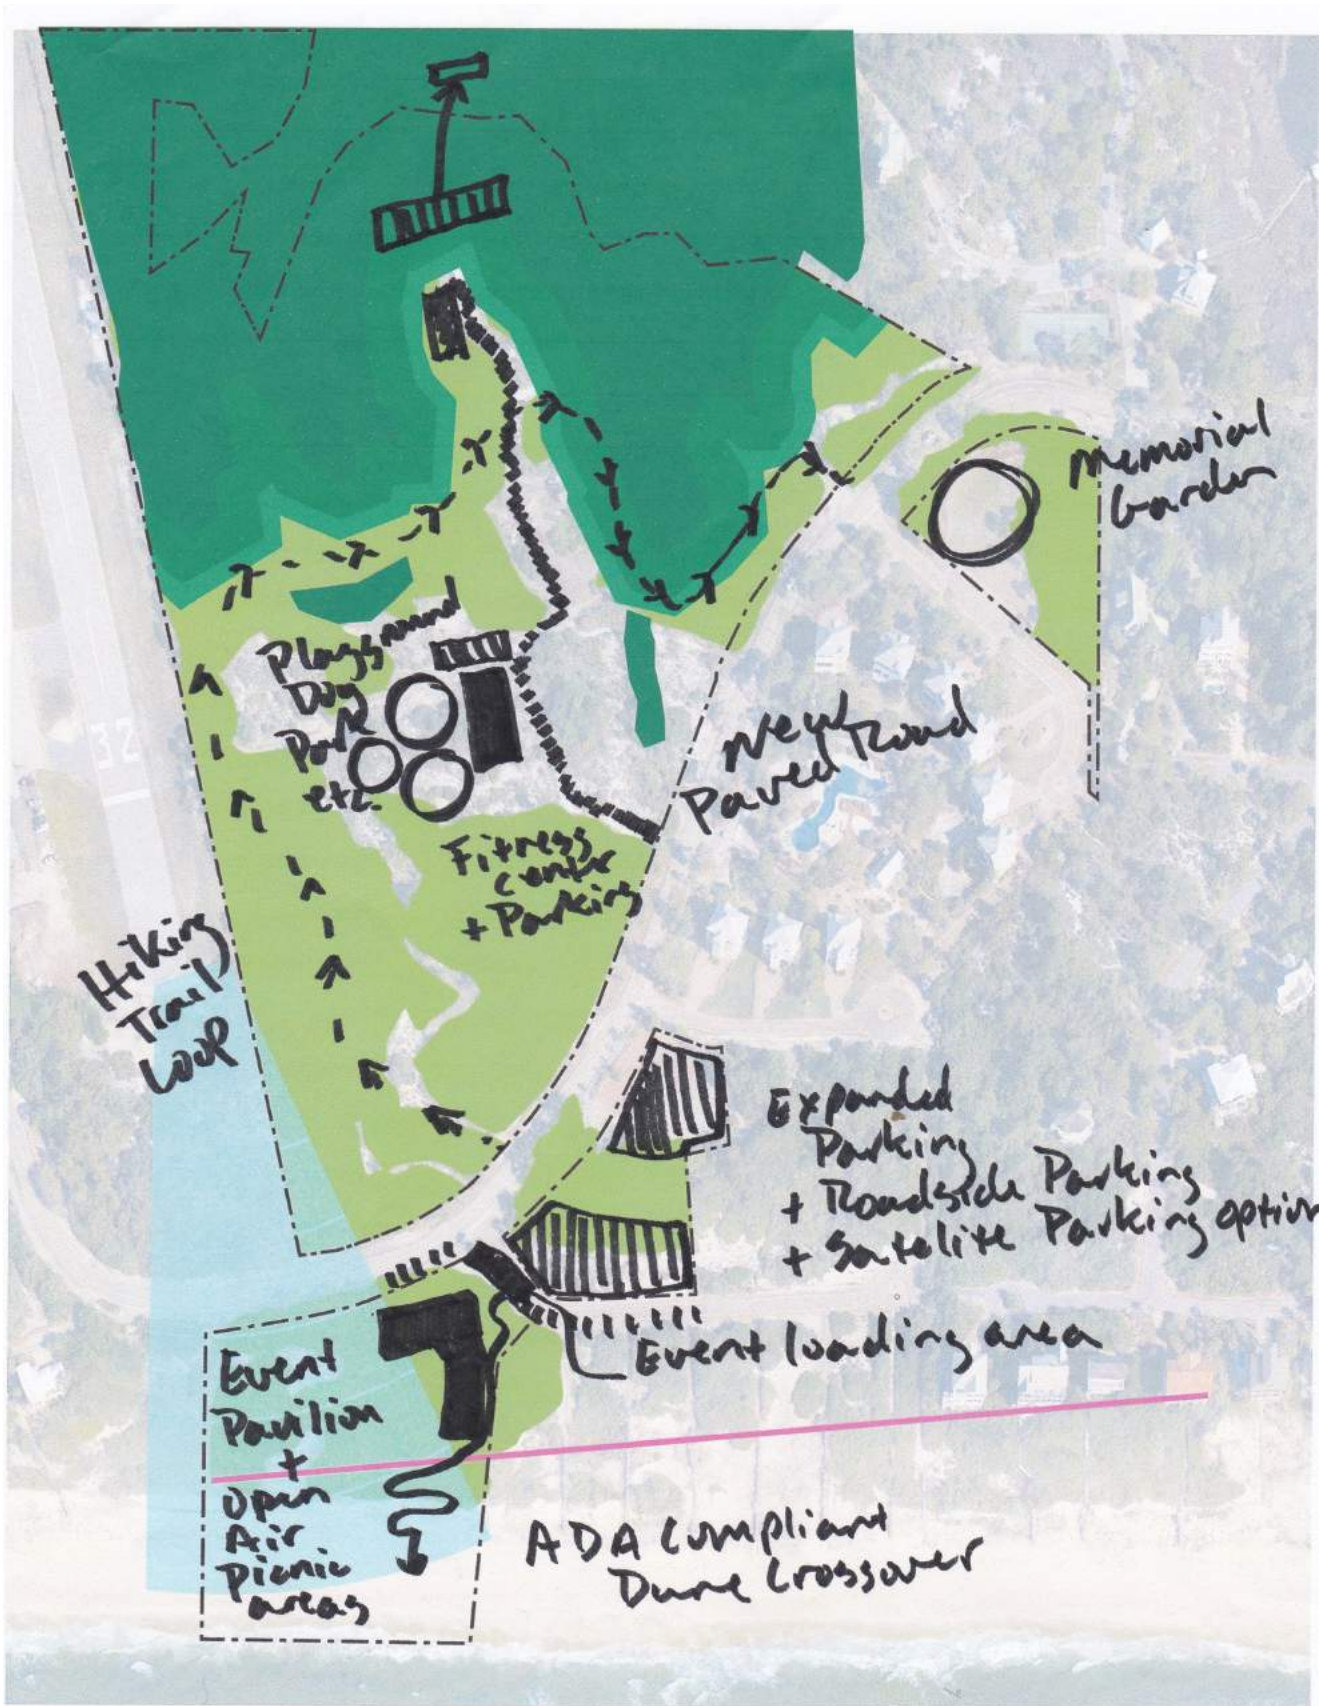 Memorial
Garden
Playground
Dog
Park
etc.
32
New Road
Paved
Fitness
Center
+ Parking
Hiking
Trail
Loop
Expanded
Parking
+ Roadside Parking
+ Satelite Parking option
Event loading area
Event
Pavilion
+
Open
Air
Picnic
areas
ADA Compliant
Dune Crossover